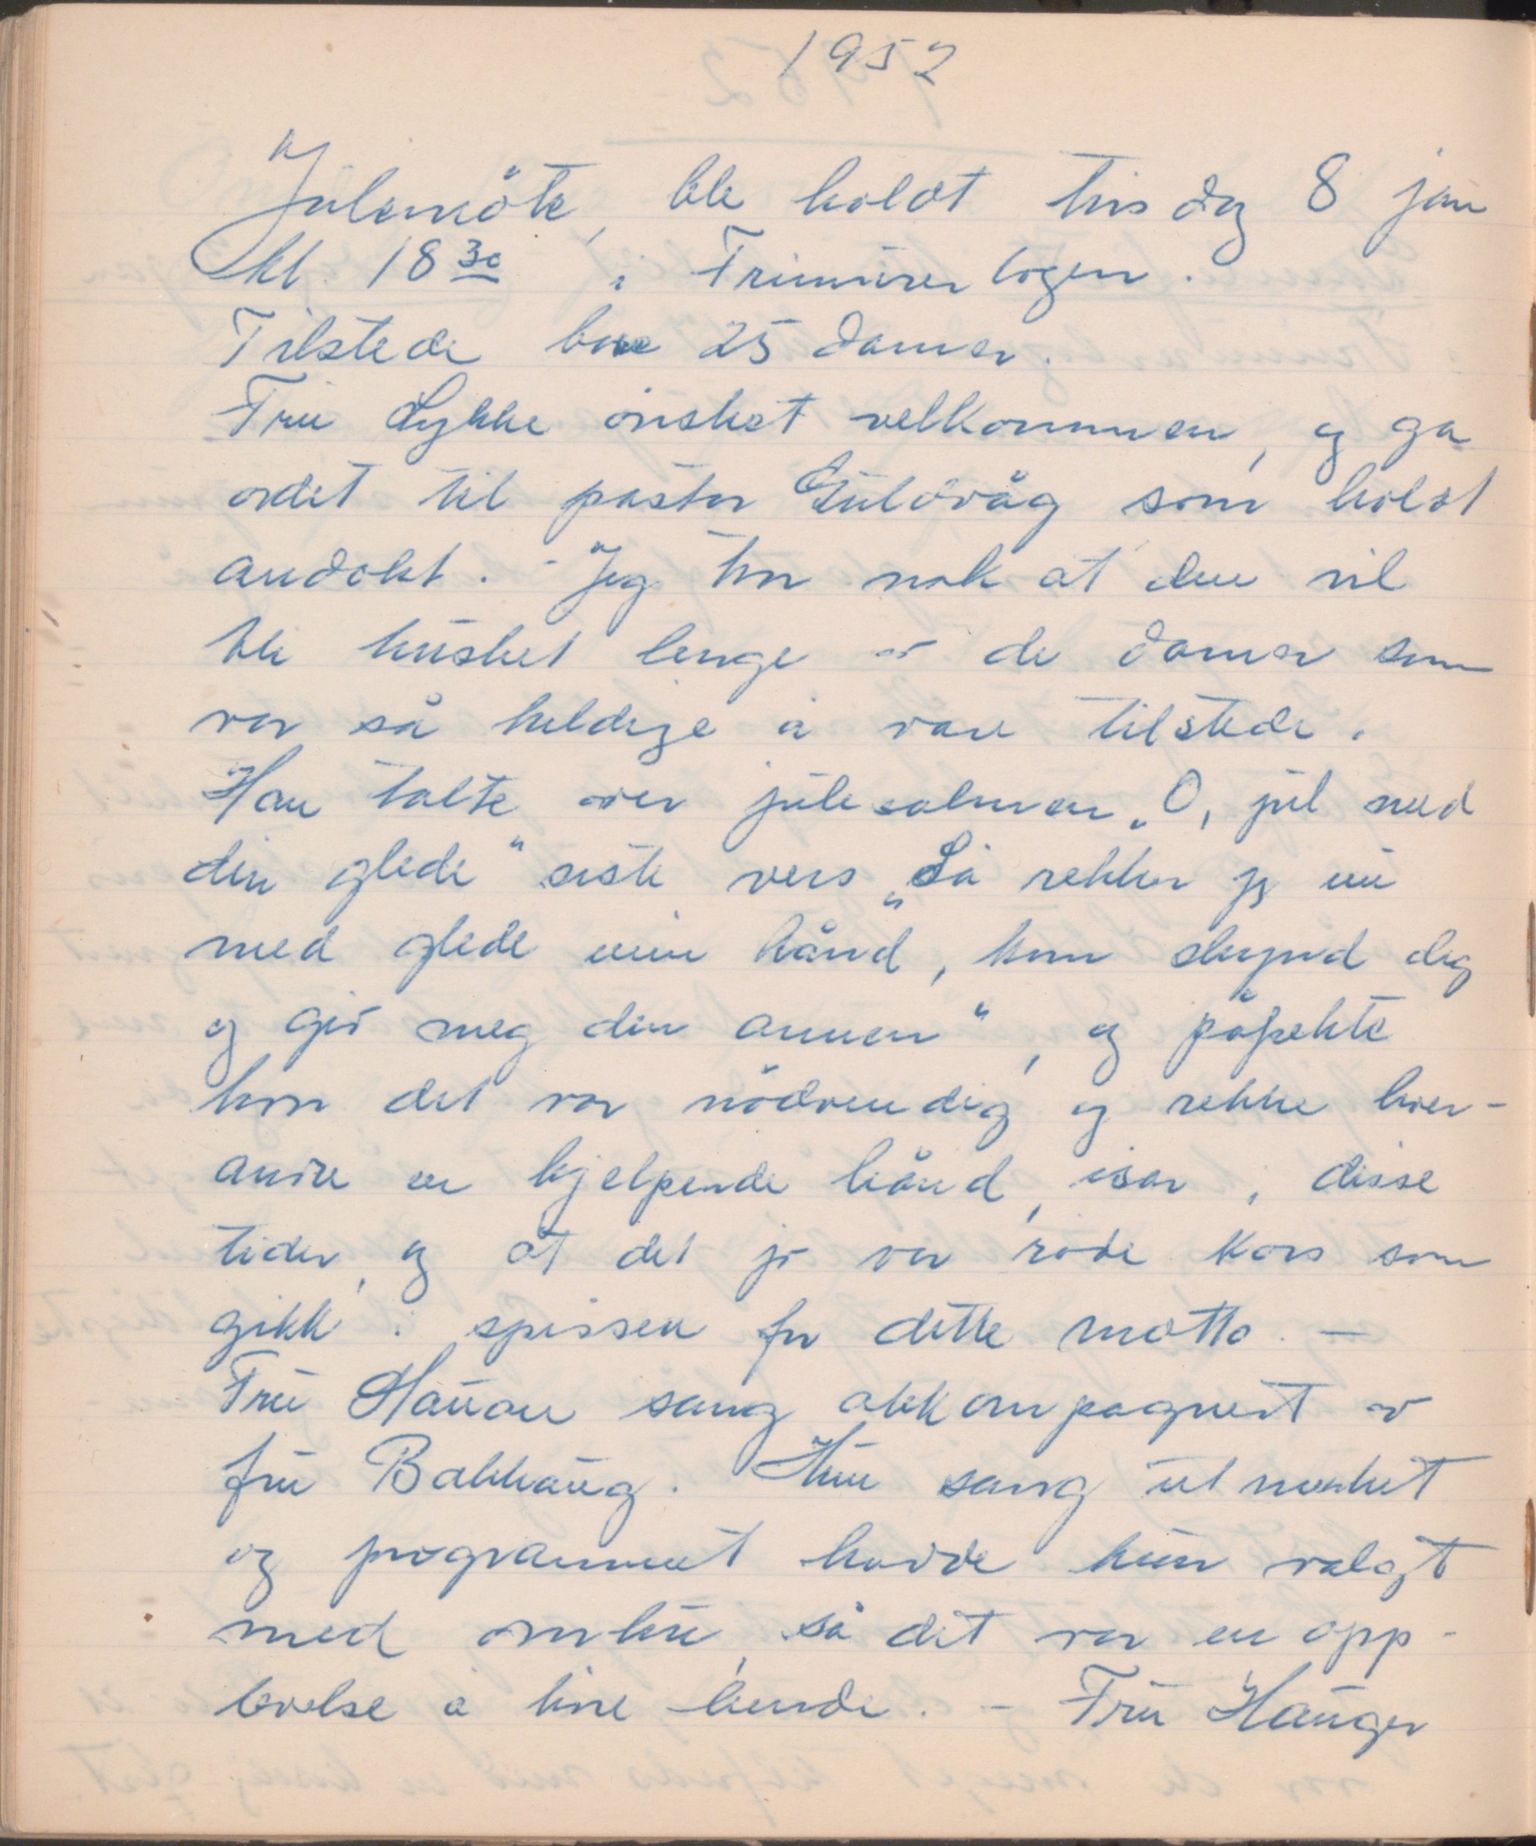 1952
Julemöte, ble holdt tirsdag 8 jan
kl. 18 30 i Frimurerlogen.
Tilstede var 25 damer.
Fru Lykke önsket velkommen, og ga
ordet til pastor Guldvåg som holdt
andakt. - Jeg tror nok at den vil
bli husket lenge av de damer som
var så heldige å være tilstede.
Han talte over julesalmen „O, jul med
din glede" siste vers „Så rekker jeg nu
med glede min hånd, kom skynd deg
og gi meg din annen", og påpekte
hvor det var nödvendig og rekke hver-
andre en hjelpende hånd, især i disse
tider, og at det jo var röde kors som
gikk i spissen for dette motto. -
Fru Hauan sang akkompagnert av
fru Bakkaug. Hun sang utmerket
og programmet hadde hun valgt
med omhu, så det var en opp-
levelse å höre hende. - Fru Hauger